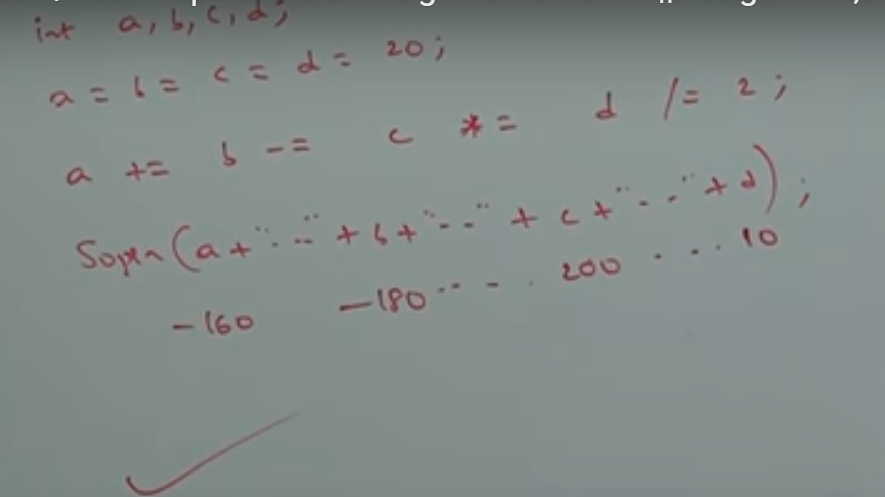 int a, b, c, d;
a = b = c = d = 20;
a += b -= c *= d /= 2;
Sopln(a+"..."+b+"..."+c+"..."+d);
-160 -180... 200 ... 10